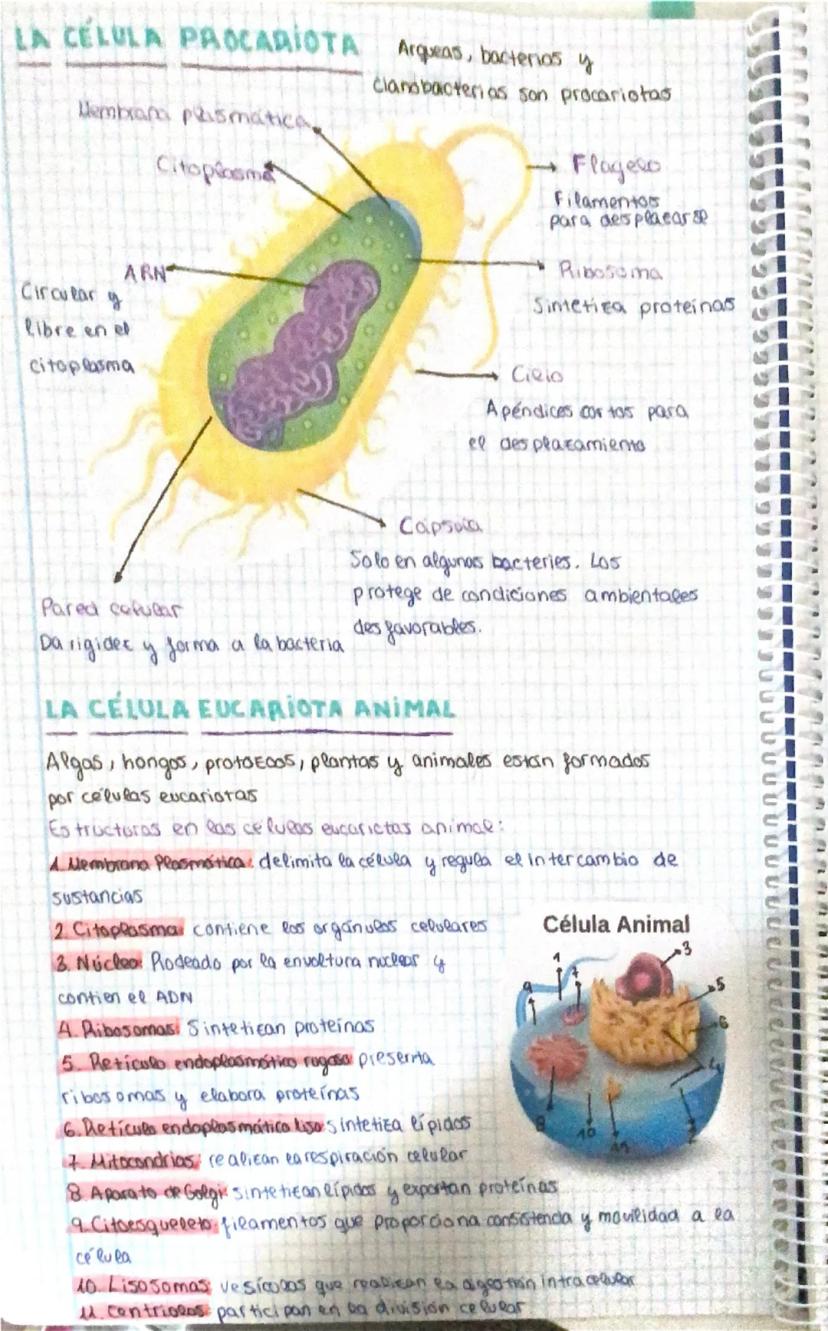 LA CÉLULA PROCARIOTA
Arqueas, bacterias y
cianobacterias son procariotas
Membrana plasmática
Citoplasma
Flagelo
Filamentos
para desplazarse
ARN
Circular y
libre en el
citoplasma
Ribosoma
Sintetiza proteínas
Cilio
Apéndices cortos para
el desplazamiento
Cápsula
Solo en algunas bacteries. Las
protege de condiciones ambientales
desfavorables.
Pared celular
Da rigidez y forma a la bacteria
LA CÉLULA EUCARIOTA ANIMAL
Algas, hongos, protozoos, plantas y animales están formados
por células eucariotas
Estructuras en las células eucariotas animal:
1. Membrana Plasmática: delimita la célula y regula el intercambio de
sustancias
2. Citoplasma: contiene los orgánulos celulares
3. Núcleo: Rodeado por la envoltura nuclear y
contien el ADN
4. Ribosomas: Sintetizan proteínas
5. Retículo endoplasmático rugoso: presenta
ribosomas y elabora proteínas
6. Retículo endoplasmático liso: sintetiza lípidos
7. Mitocondrias: realizan la respiración celular
8. Aparato de Golgi: sintetizan lípidos y exportan proteínas
9. Citoesqueleto: filamentos que proporciona consistencia y movilidad a la
célula
10. Lisosomas: vesículas que realizan la digestión intracelular
11. Centriolos: participan en la división celular
Célula Animal
1
3
7
9
5
6
4
8
10
11
2